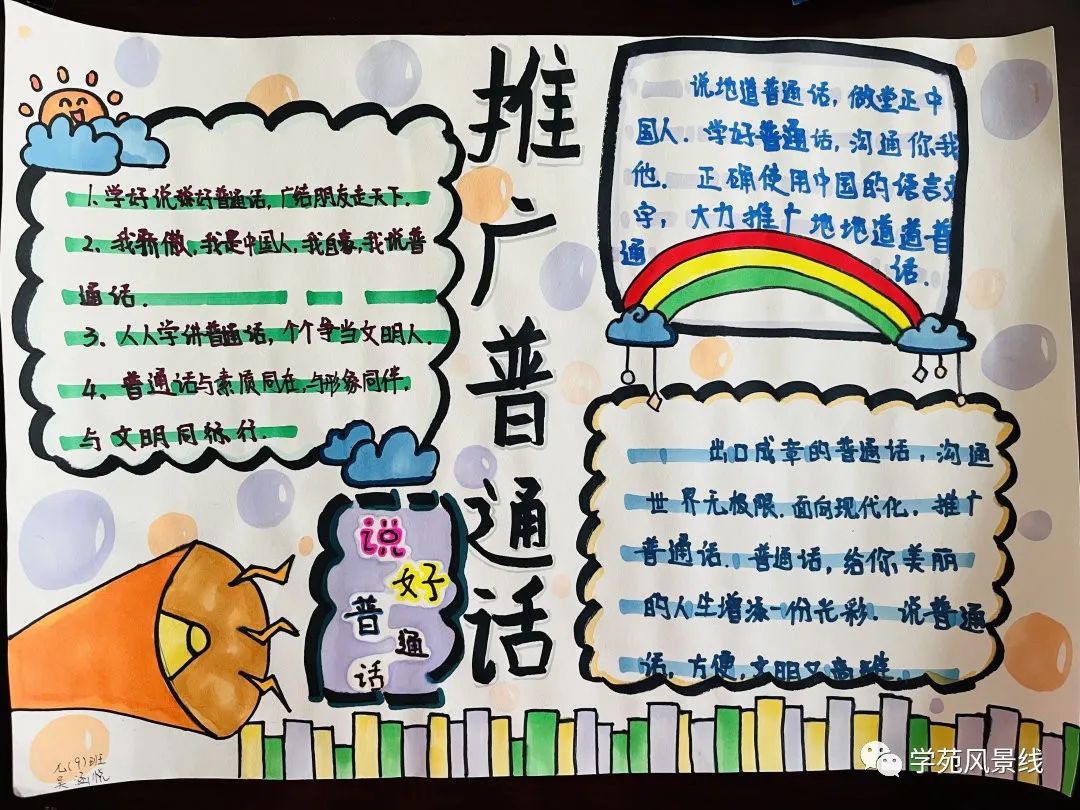 推广普通话
1. 学好说好普通话,广结朋友走天下.
2. 我骄傲,我是中国人,我自豪,我说普
通话.
3. 人人学讲普通话,个个争当文明人.
4. 普通话与素质同在,与形象同伴,
与文明同行.
说好普通话
说地道普通话,做堂正中
国人.学好普通话,沟通你我
他. 正确使用中国的语言文
字,大力推广地地道道普
通话.
出口成章的普通话,沟通
世界无极限.面向现代化,推广
普通话.普通话,给你美丽
的人生增添一份光彩.说普通
话,方便,文明又高雅.
(9)班
吴涵悦
学苑风景线